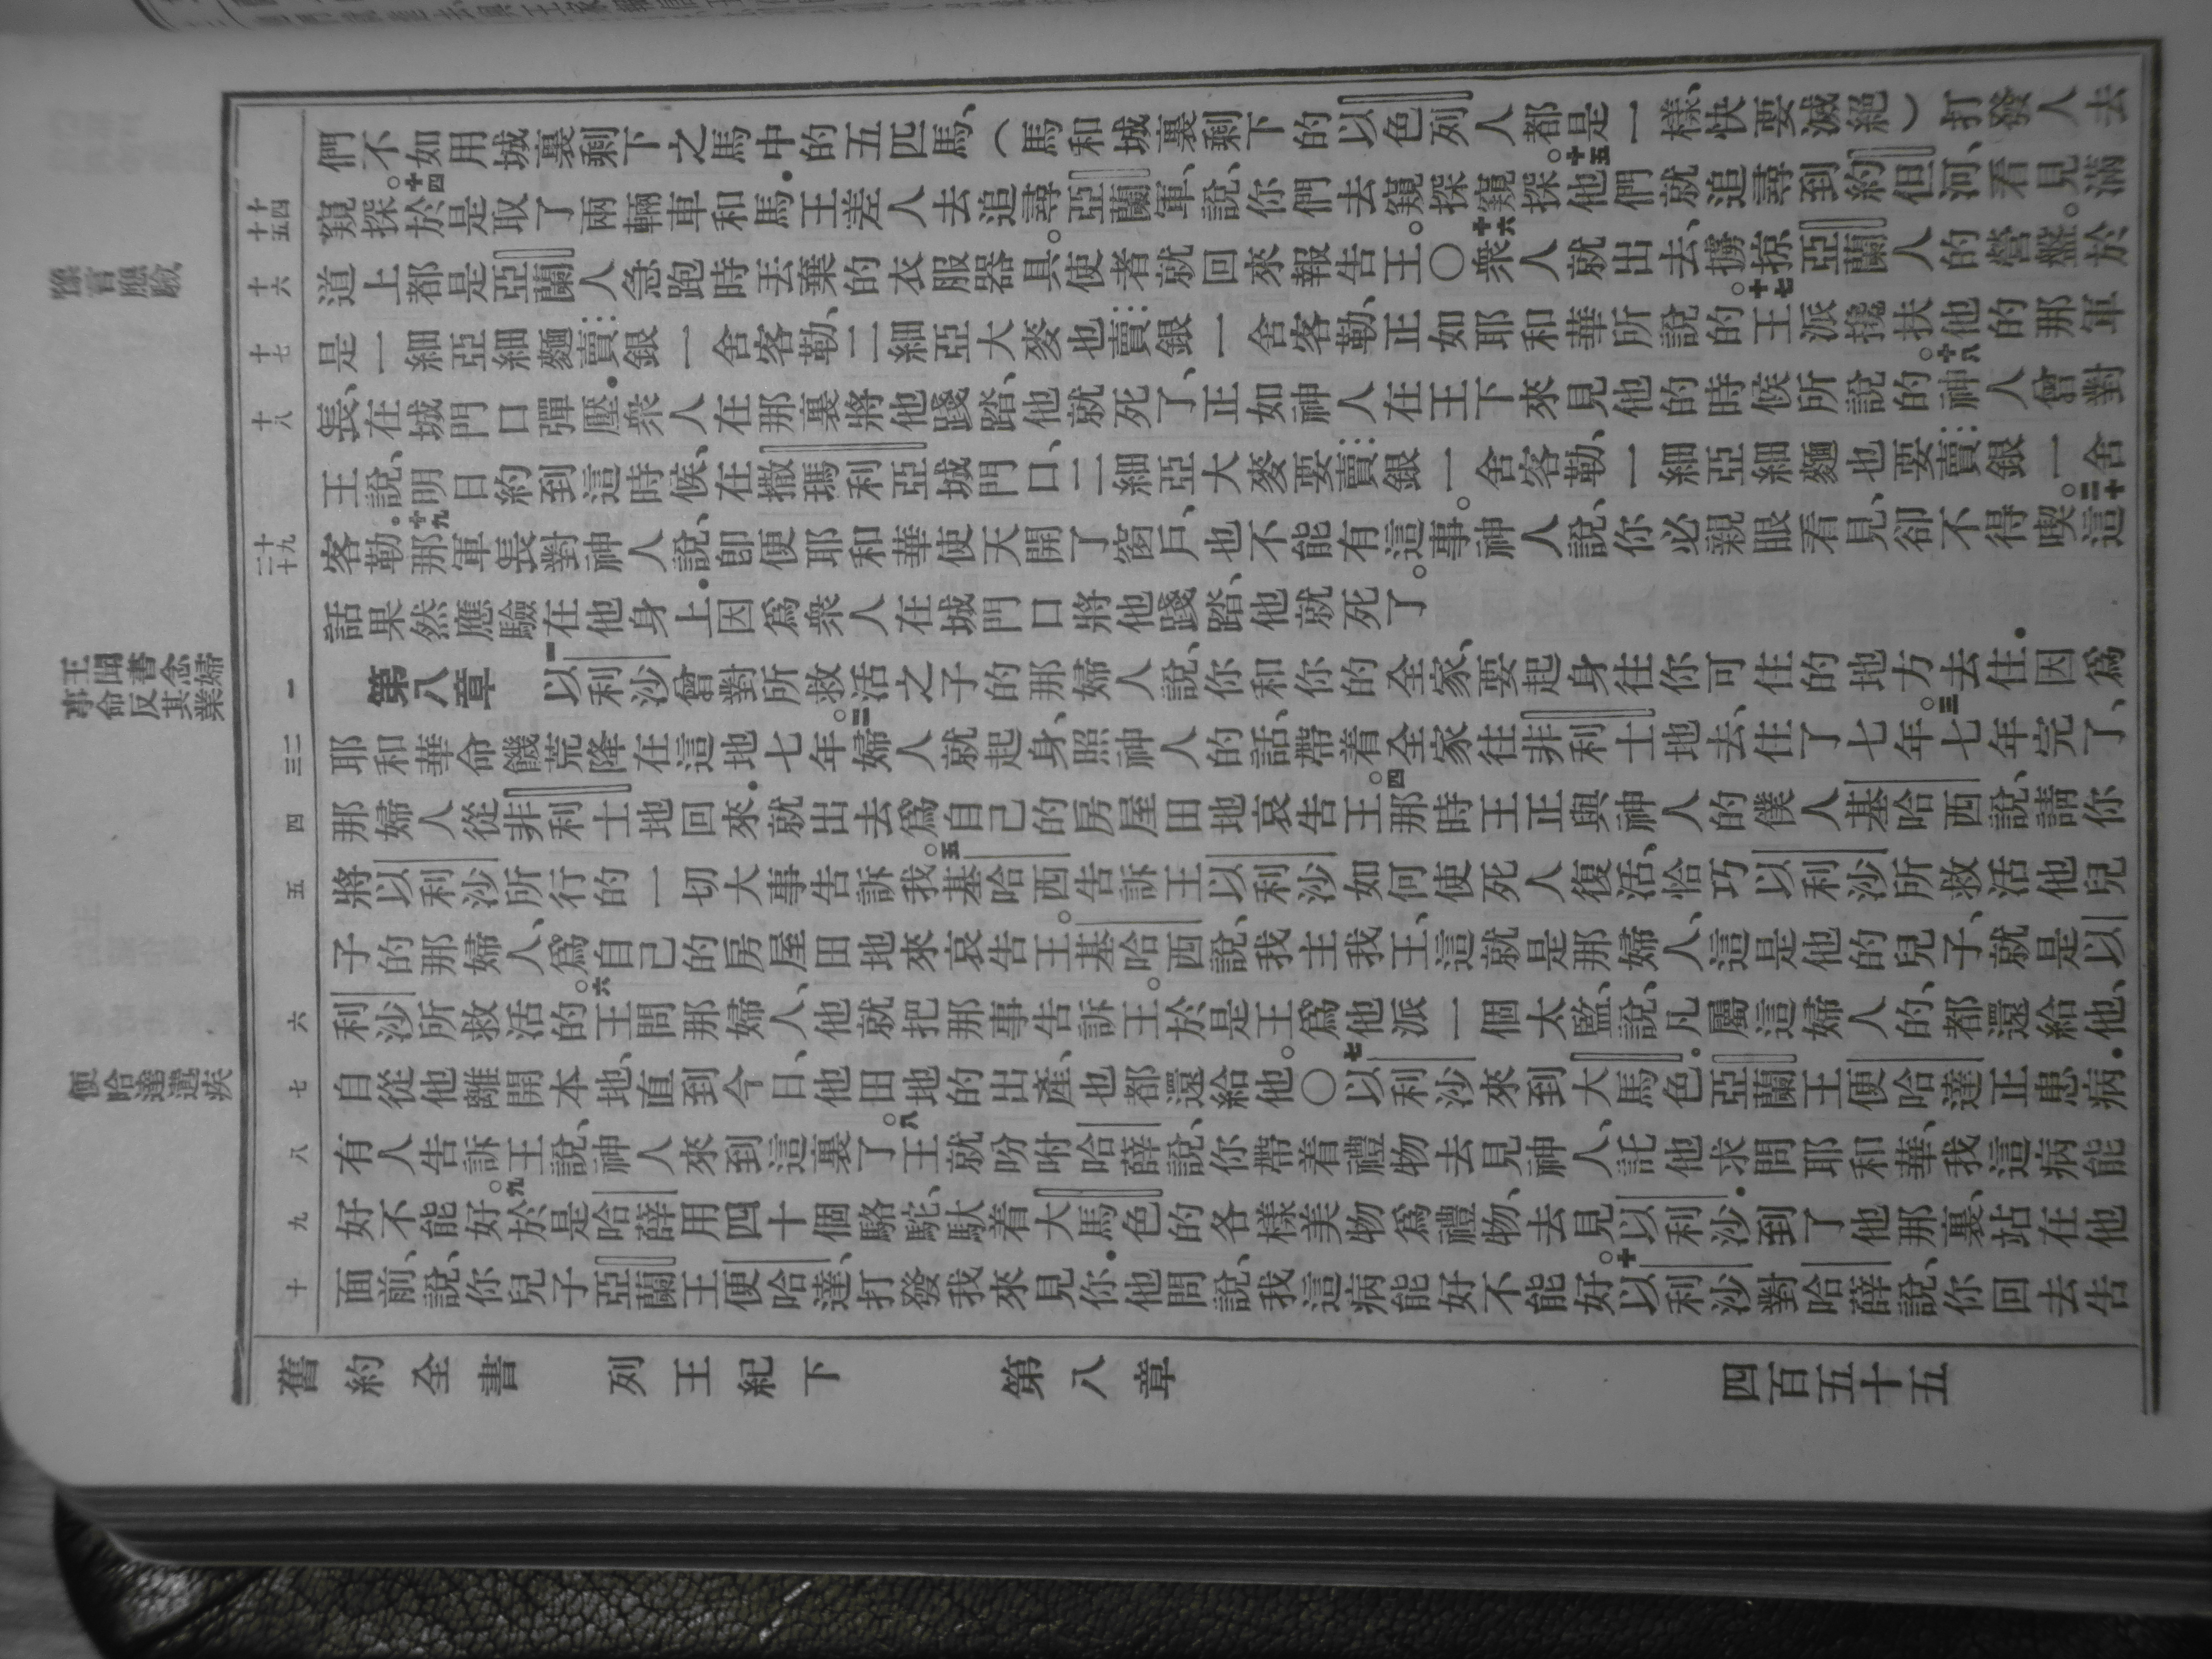 豫言應驗
事命反其業
便哈達遘疾
十四
十五
十六
十七
十八
十九
二十
一
二
三
四
五
六
七
八
九
十
們不如用城裏剩下之馬中的五匹馬、（馬和城裏剩下的以色列人都是一樣、快要滅絕）打發人去
窺探。十四於是取了兩輛車和馬．王差人去追尋亞蘭軍、說、你們去窺探窺探。十五他們就追尋到約但河、看見滿
道上都是亞蘭人急跑時丟棄的衣服器具。使者就回來報告王。〇十六衆人就出去、擄掠亞蘭人的營盤。於
是一細亞細麵賣銀一舍客勒、二細亞大麥也賣銀一舍客勒、正如耶和華所說的。十七王派攙扶他的那軍
長、在城門口彈壓．衆人在那裏將他踐踏、他就死了、正如神人在王下來見他的時候所說的。十八神人曾對
王說、明日約到這時候、在撒瑪利亞城門口、二細亞大麥要賣銀一舍客勒、一細亞細麵也要賣銀一舍
客勒．十九那軍長對神人說、卽便耶和華使天開了窗戶、也不能有這事。神人說、你必親眼看見、卻不得喫。二十這
話果然應驗在他身上．因爲衆人在城門口將他踐踏、他就死了。
第八章　一以利沙曾對所救活之子的那婦人說、你和你的全家、要起身往你可住的地方去住．因爲
耶和華命饑荒降在這地七年。二婦人就起身、照神人的話、帶着全家往非利士地去、住了七年。三七年完了、
那婦人從非利士地回來．就出去爲自己的房屋田地哀告王。四那時王正與神人的僕人基哈西說、請你
將以利沙所行的一切大事告訴我。五基哈西告訴王以利沙如何使死人復活、恰巧以利沙所救活他兒
子的那婦人、爲自己的房屋田地來哀告王。基哈西說、我主我王、這就是那婦人、這是他的兒子、就是以
利沙所救活的。六王問那婦人、他就把那事告訴王。於是王爲他派一個太監、說、凡屬這婦人的、都還給他、
自從他離開本地、直到今日、他田地的出產、也都還給他。〇七以利沙來到大馬色．亞蘭王便哈達正患病．
有人告訴王說、神人來到這裏了。八王就吩咐哈薛說、你帶着禮物去見神人、託他求問耶和華、我這病能
好不能好。九於是哈薛用四十個駱駝、馱着大馬色的各樣美物爲禮物、去見以利沙．到了他那裏、站在他
面前、說、你兒子亞蘭王便哈達、打發我來見你．他問說、我這病能好不能好。十以利沙對哈薛說、你回去告
舊約全書　列王紀下　第八章　四百五十五